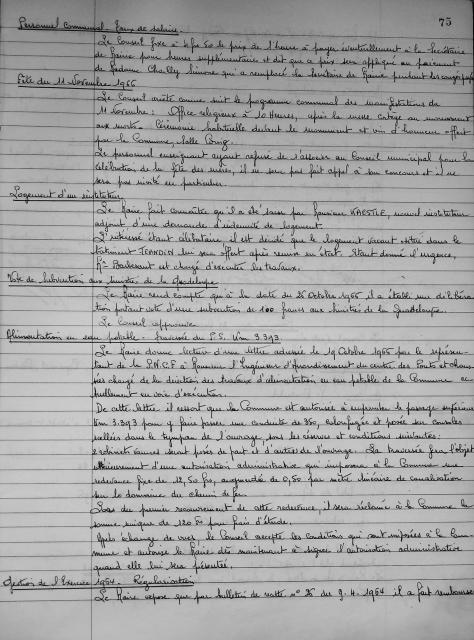 75
Personnel Communal - Taux de salaire.
Le Conseil fixe à 4 frs 50 le prix de l'heure à payer éventuellement à la Secrétaire
de Mairie pour heures supplémentaires et dit que ce prix sera appliqué au paiement
de Madame Simone qui a remplacé la Secrétaire de Mairie pendant les congés payés
Fête du 11 Novembre 1966
Le Conseil arrête comme suit le programme communal des manifestations du
11 Novembre : Office religieux à 10 Heures, après la messe cortège au monument
aux morts. Cérémonie habituelle devant le monument et vin d'honneur offert
par la Commune, salle
Le personnel enseignant ayant refusé de s'associer au Conseil municipal pour la
célébration de la fête des mères, il ne sera pas fait appel à son concours et il ne
sera pas invité en particulier.
Logement d'un instituteur
Le Maire fait connaître qu'il a été saisi par Monsieur KAESTLE, nouvel instituteur
adjoint d'une demande d'indemnité de logement.
L'intéressé étant célibataire, il est décidé que le logement vacant situé dans le
bâtiment JEANDIN lui sera offert après remise en état. Etant donné l'urgence,
Mr est chargé d'exécuter les travaux.
Vote de subvention aux sinistrés de la Guadeloupe
Le Maire rend compte qu'à la date du 26 Octobre 1966 il a établi une délibéra-
tion portant vote d'une subvention de 100 francs aux sinistrés de la Guadeloupe.
Le Conseil approuve.
Alimentation en eau potable - traversée du P.S. Km 3.393
Le Maire donne lecture d'une lettre adressée le 19 Octobre 1966 par le représen-
tant de la S.N.C.F à Monsieur l'Ingénieur d'Arrondissement du centre des Ponts et Chaus-
sées chargé de la direction des travaux d'alimentation en eau potable de la Commune ac-
tuellement en voie d'exécution.
De cette lettre il ressort que la Commune est autorisée à emprunter le passage supérieur
Km 3.393 pour y faire passer une conduite de 350, calorifugée et posée sur consoles
scellées dans le tympan de l'ouvrage, sous les réserves et conditions suivantes :
2 robinets vannes seront posés de part et d'autre de l'ouvrage. La traversée fera l'objet
ultérieurement d'une autorisation administrative qui imposera à la Commune une
redevance fixe de 12,50 frs, augmentée de 0,50 par mètre linéaire de canalisation
sur le domaine du chemin de fer.
Lors du premier recouvrement de cette redevance, il sera réclamé à la Commune la
somme unique de 120 frs pour frais d'étude.
Après échange de vues, le Conseil accepte les conditions qui sont imposées à la Com-
mune et autorise le Maire dès maintenant à signer l'autorisation administrative
quand elle lui sera présentée.
Gestion de l'Exercice 1964. Régularisation
Le Maire expose que par bulletin de versement n° 26 du 9.4.1964 il a fait rembourser